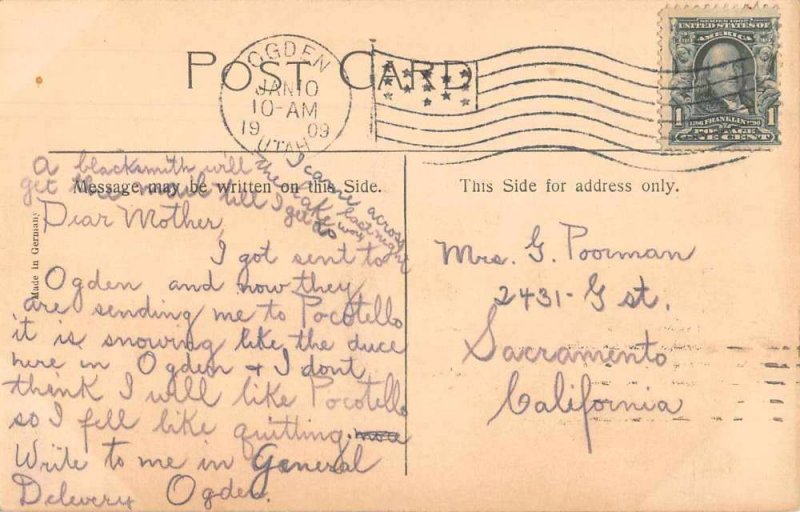 POST CARD
OGDEN
JAN 10
10-AM
19 09
UTAH
SERIES 1902
UNITED STATES OF AMERICA
1 1
1706 FRANKLIN 1790
POSTAGE
ONE CENT
Message may be written on this Side.
This Side for address only.
Made in Germany
A blacksmith will
get the mail till I get to
I came across
the lake last night
Dear Mother,
I got sent to
Ogden and now they
are sending me to Pocotello
it is snowing like the duce
here in Ogden + I dont
think I will like Pocotello
so I fell like quitting.
Write to me in General
Delevery Ogden.
Mrs. G. Poorman
2431- G st.
Sacramento
California